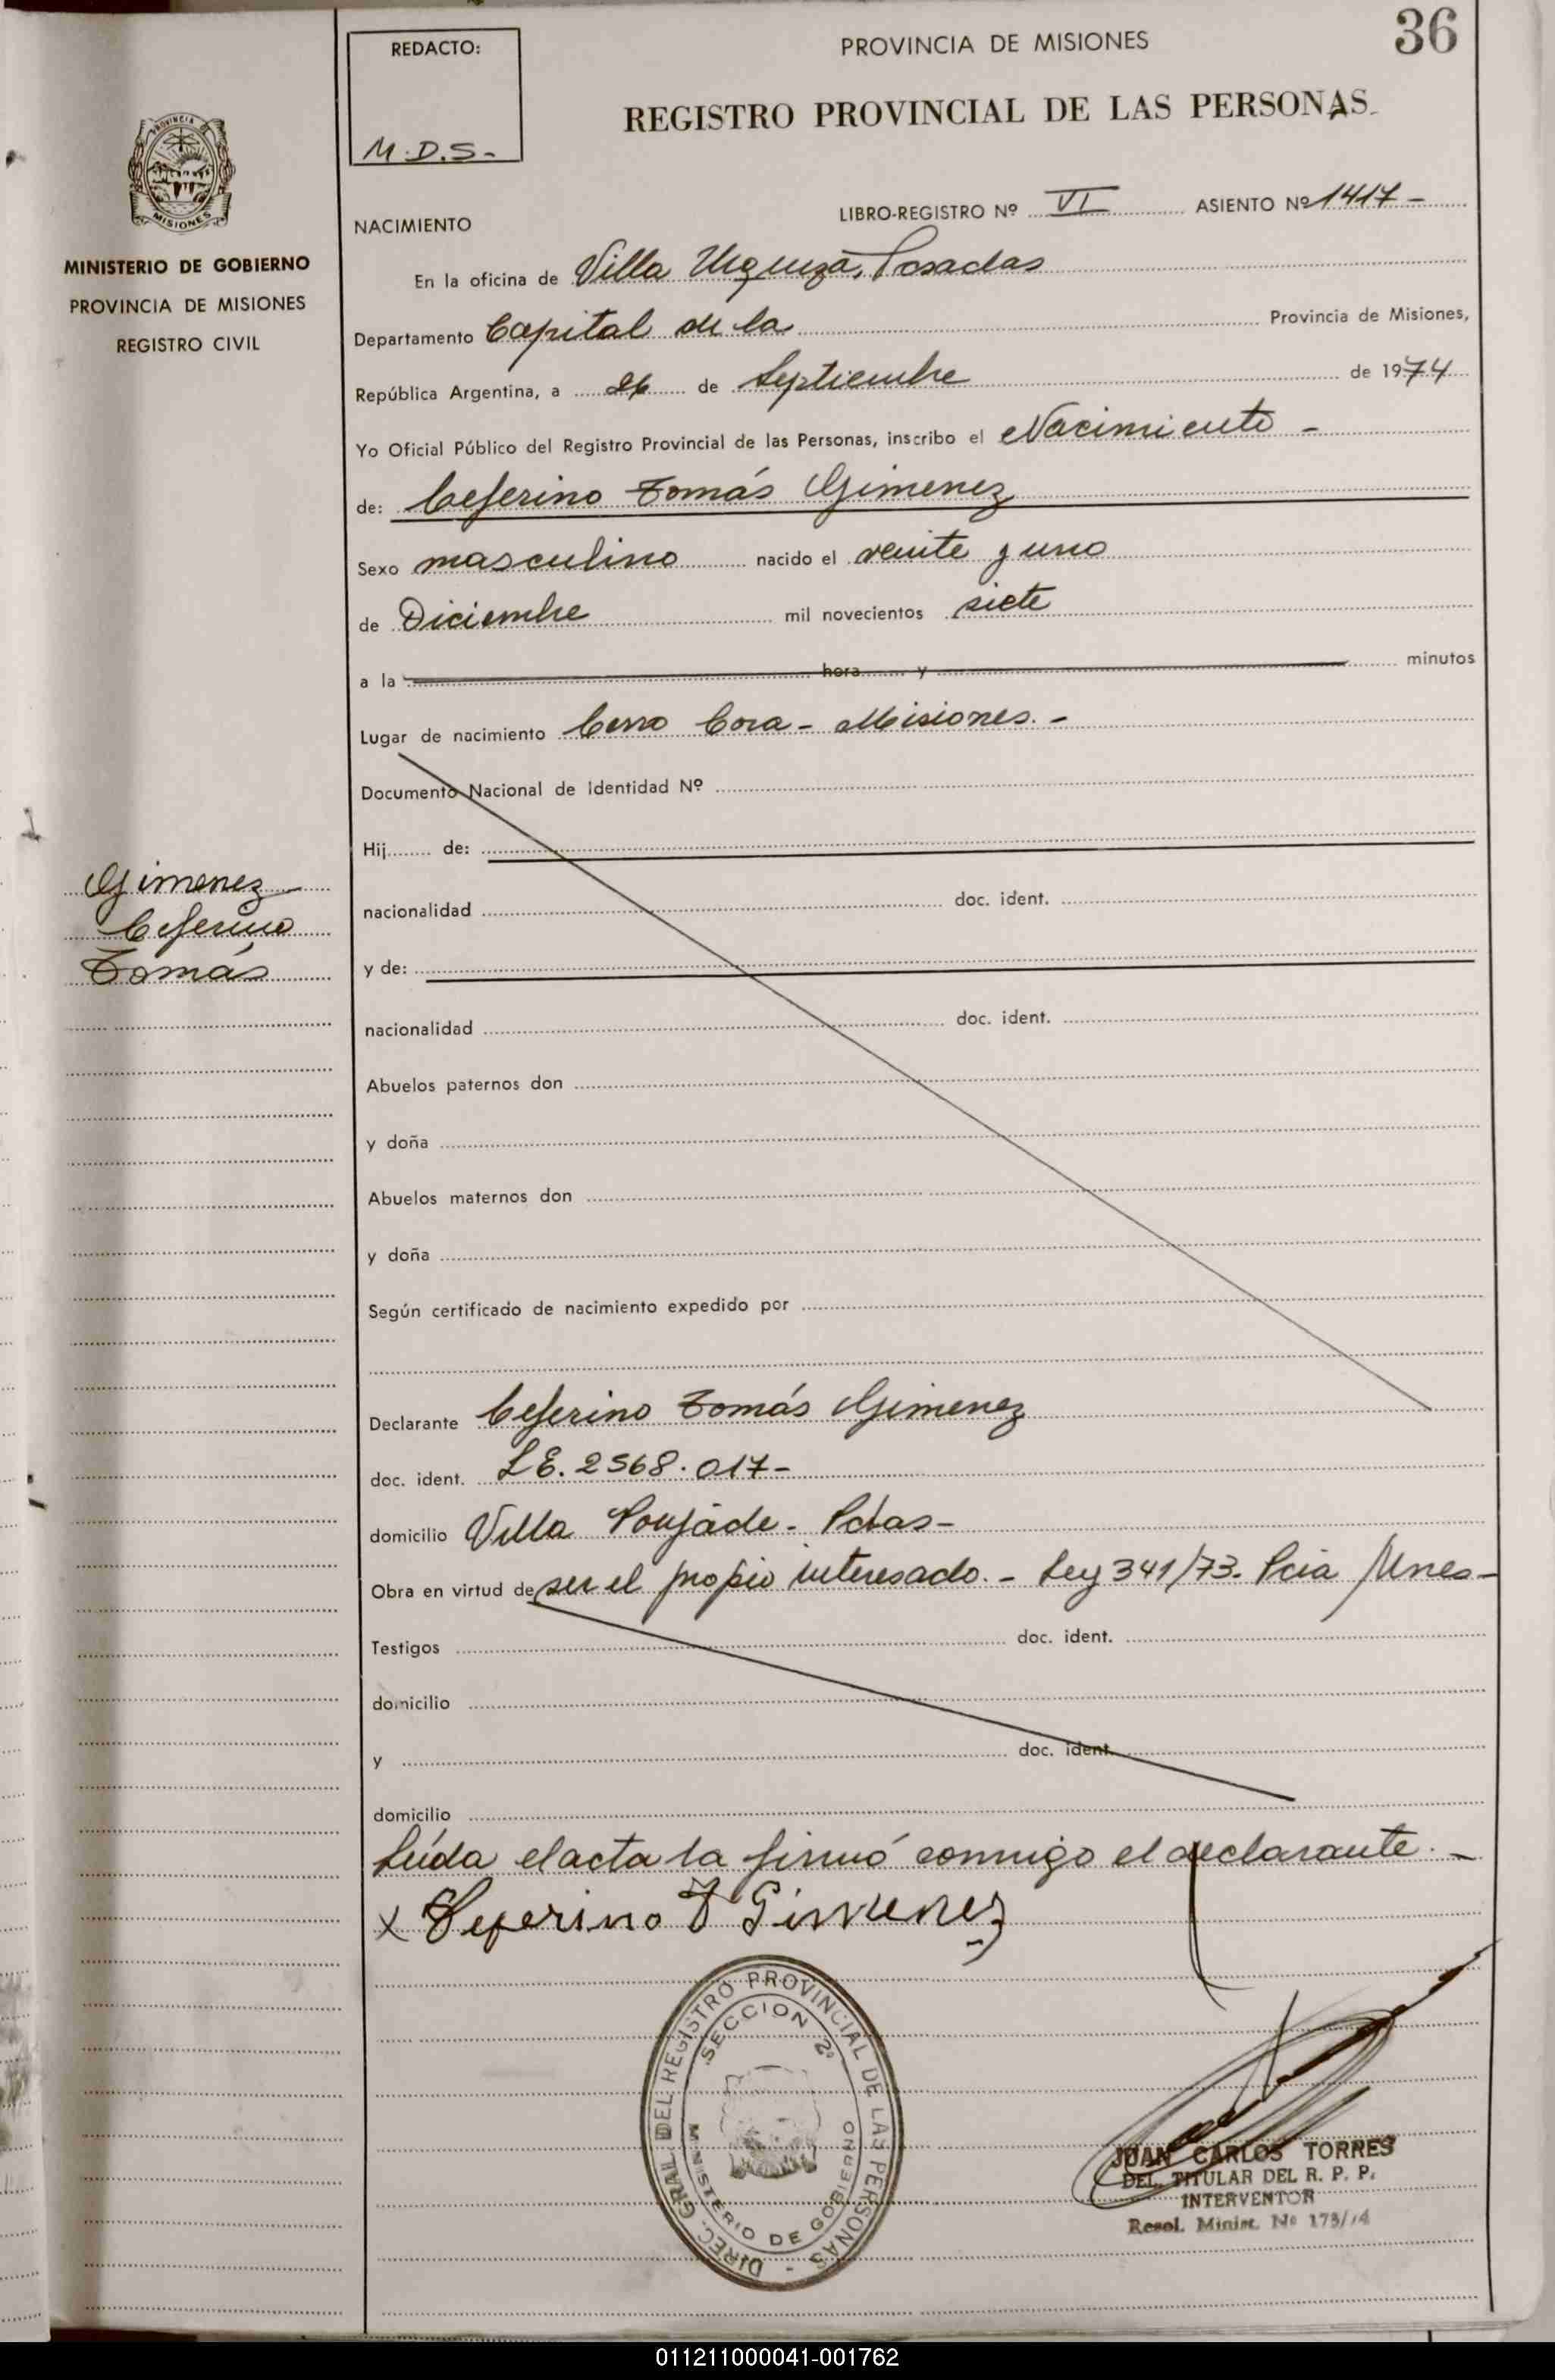 36
REDACTO:
M.D.S-
PROVINCIA DE MISIONES
REGISTRO PROVINCIAL DE LAS PERSONAS
PROVINCIA DE
MISIONES
MINISTERIO DE GOBIERNO
PROVINCIA DE MISIONES
REGISTRO CIVIL
NACIMIENTO LIBRO-REGISTRO Nº VI ASIENTO Nº 1417-
En la oficina de Villa Urquiza, Posadas
Departamento Capital de la Provincia de Misiones,
República Argentina, a 26 de Septiembre de 1974
Yo Oficial Público del Registro Provincial de las Personas, inscribo el Nacimiento -
de: Ceferino Tomás Gimenez
Sexo masculino nacido el veinte y uno
de Diciembre mil novecientos siete
a la hora y minutos
Lugar de nacimiento Cerro Cora - Misiones. -
Documento Nacional de Identidad Nº
Hij de:
nacionalidad doc. ident.
y de:
nacionalidad doc. ident.
Abuelos paternos don
y doña
Abuelos maternos don
y doña
Según certificado de nacimiento expedido por
Gimenez
Ceferino
Tomás
Declarante Ceferino Tomás Gimenez
doc. ident. L.E. 2568.017-
domicilio Villa Poujade - Pdas-
Obra en virtud de ser el propio interesado. - Ley 341/73. Pcia Mnes-
Testigos doc. ident.
domicilio
y doc. ident.
domicilio
Leída el acta la firmó conmigo el declarante. -
x Seferino T Gimenez
DIREC. GRAL. DEL REGISTRO PROVINCIAL DE LAS PERSONAS -
SECCION 2ª
MINISTERIO DE GOBIERNO
JUAN CARLOS TORRES
DEL. TITULAR DEL R. P. P.
INTERVENTOR
Resol. Minist. Nº 173/74
011211000041-001762